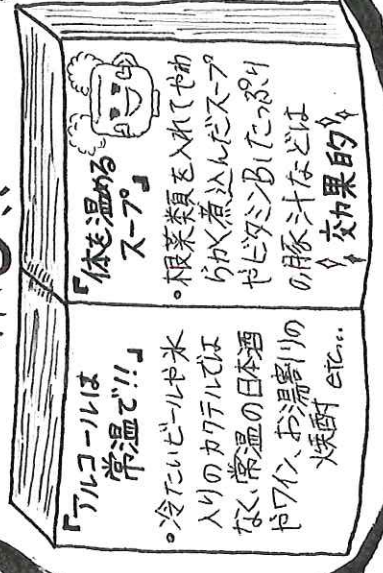 『体を温める
スープ』
・根菜類を入れてやわ
らかく煮込んだスープ
やビタミンB1たっぷり
の豚汁などは
効果的
『アルコールは
常温で!!』
・冷たいビールや氷
入りのカクテルでは
なく、常温の日本酒
やワイン、お湯割りの
焼酎 etc...